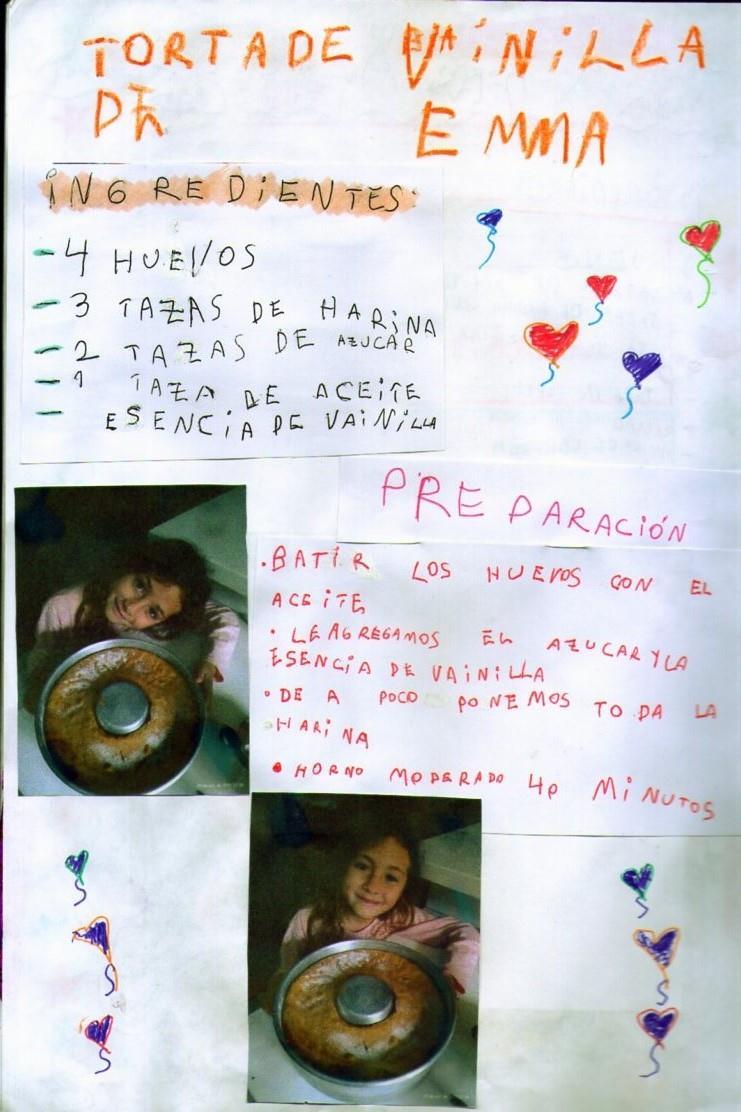 TORTA DE VAiNiLLA
DE EMMA
iNGREDiENTES:
- 4 HUEVOS
- 3 TAZAS DE HARiNA
- 2 TAZAS DE AZUCAR
- 1 TAZA DE ACEiTE
- ESENCiA DE VAiNiLLA
PREPARACiÓN
• BATiR LOS HUEVOS CON EL
ACEiTE
• LE AGREGAMOS EL AZUCAR Y LA
ESENCiA DE VAiNiLLA
• DE A POCO PONEMOS TODA LA
HARiNA
• HORNO MODERADO 40 MiNUTOS